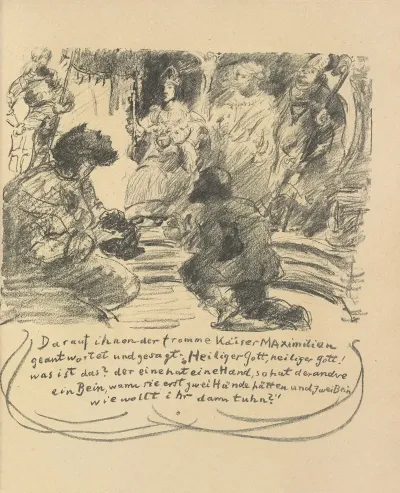 Darauf ihnen der fromme Kaiser Maximilien
geantwortet und gesagt: „Heiliger Gott, heiliger Gott!
was ist das? der eine hat eine Hand, so hat der andre
ein Bein, wann sie erst zwei Hände hätten und zwei Bein
wie wollt ihr dann tuhn?"